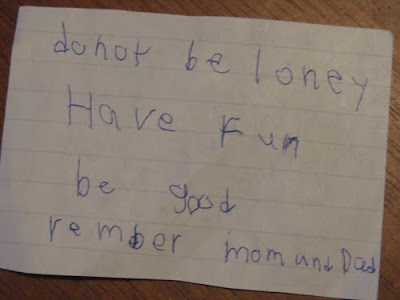 do not be loney
Have Fun
be good
rember mom and Dad